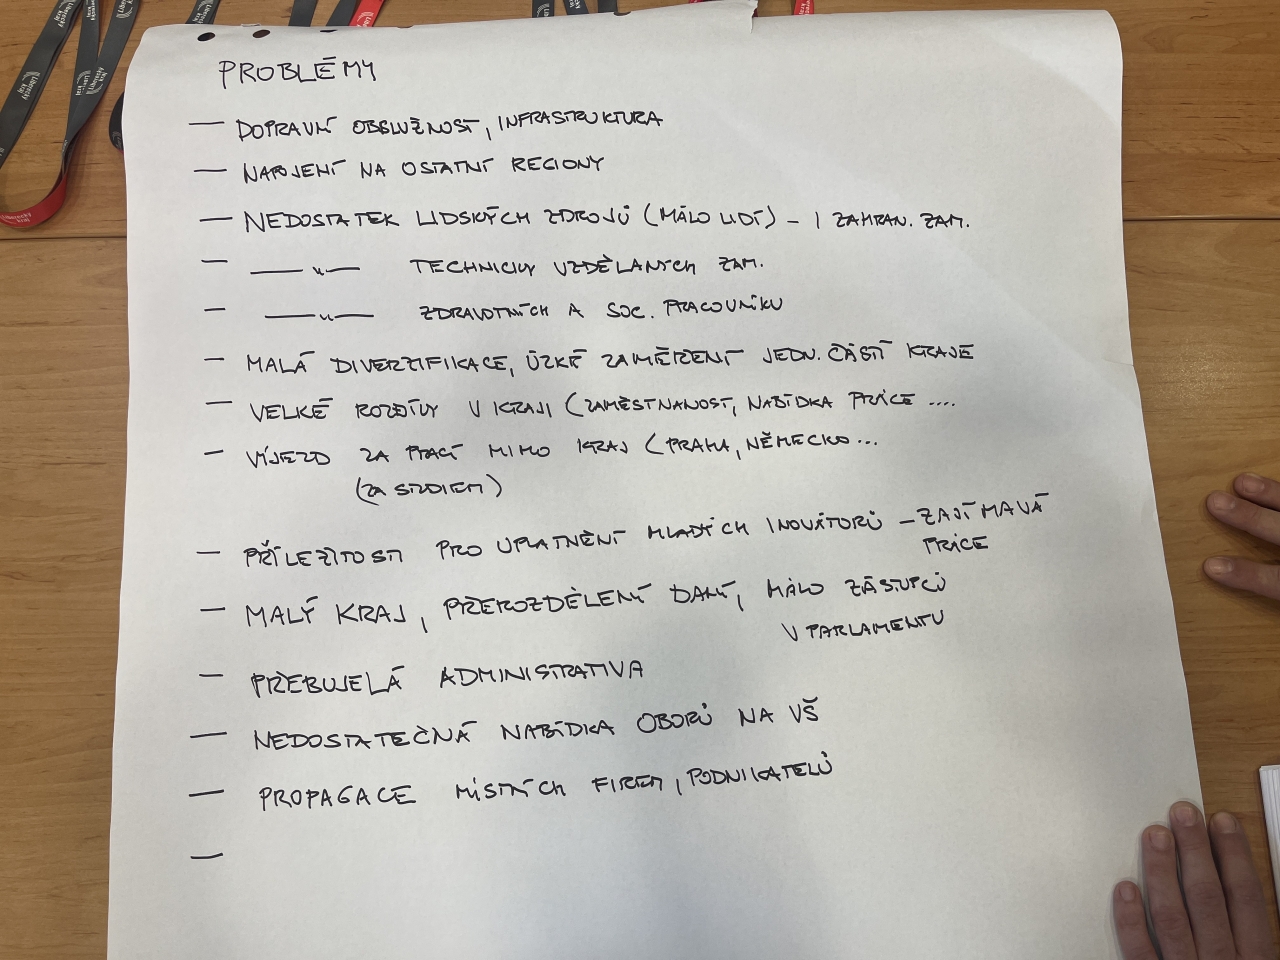 PROBLÉMY
— DOPRAVNÍ OBSLUŽNOST, INFRASTRUKTURA
— NAPOJENÍ NA OSTATNÍ REGIONY
— NEDOSTATEK LIDSKÝCH ZDROJŮ (MÁLO LIDÍ) – I ZAHRAN. ZAM.
— —— " —— TECHNICKY VZDĚLANÝCH ZAM.
— —— " —— ZDRAVOTNÍCH A SOC. PRACOVNÍKU
— MALÁ DIVERZIFIKACE, ÚZKÉ ZAMĚŘENÍ JEDN. ČÁSTÍ KRAJE
— VELKÉ ROZDÍLY V KRAJI (ZAMĚSTNANOST, NABÍDKA PRÁCE ....
— VÝJEZD ZA PRACÍ MIMO KRAJ (PRAHA, NĚMECKO ...
(ZA STUDIEM)
— PŘÍLEŽITOSTI PRO UPLATNĚNÍ MLADÝCH INOVÁTORŮ – ZAJÍMAVÁ
PRÁCE
— MALÝ KRAJ, PŘEROZDĚLENÍ DANÍ, MÁLO ZÁSTUPCŮ
V PARLAMENTU
— PŘEBUJELÁ ADMINISTRATIVA
— NEDOSTATEČNÁ NABÍDKA OBORŮ NA VŠ
— PROPAGACE MÍSTNÍCH FIREM, PODNIKATELŮ
—
Liberecký
kraj